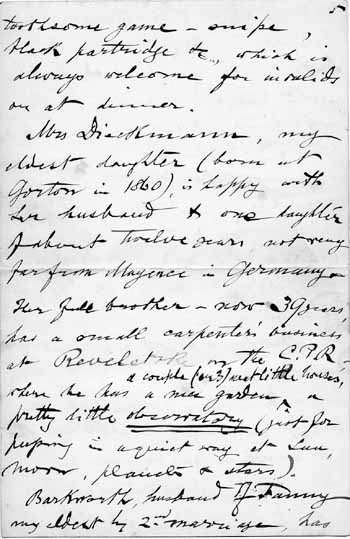 5
toothsome game – snipe,
black partridge &c., which is
always welcome for invalids
or at dinner.
Mrs Dieckmann, my
eldest daughter (born at
Gorton in 1860), is happy with
her husband & one daughter
of about twelve years, not very
far from Mayence in Germany.
Her full brother – now 39 years,
has a small carpenters' business
at Revelstoke on the C.P.R –
a couple (or 3) neat little houses,
where he has a nice garden, a
pretty little observatory (just for
peeping in a quiet way at Sun,
Moon, planets & stars).
Barkworth, husband of Fanny
my eldest by 2nd marriage, has